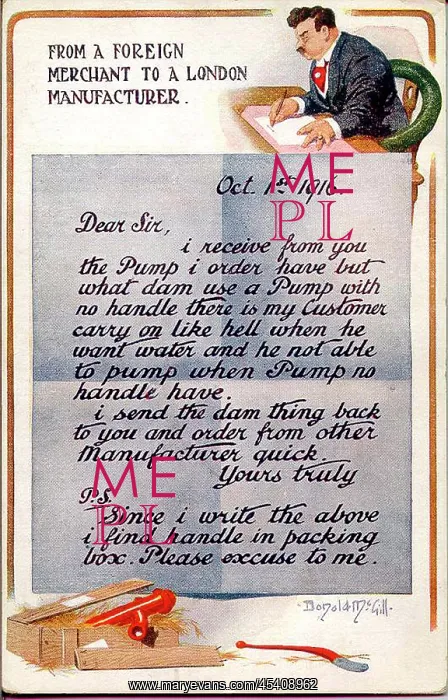 FROM A FOREIGN
MERCHANT TO A LONDON
MANUFACTURER.
Oct. 1st 1916
ME
PL
Dear Sir,
i receive from you
the Pump i order have but
what dam use a Pump with
no handle there is my Customer
carry on like hell when he
want water and he not able
to pump when Pump no
handle have.
i send the dam thing back
to you and order from other
Manufacturer quick.
Yours truly
ME
PL
P.S.
Since i write the above
i find handle in packing
box. Please excuse to me.
Donald McGill.
www.maryevans.com/45408962